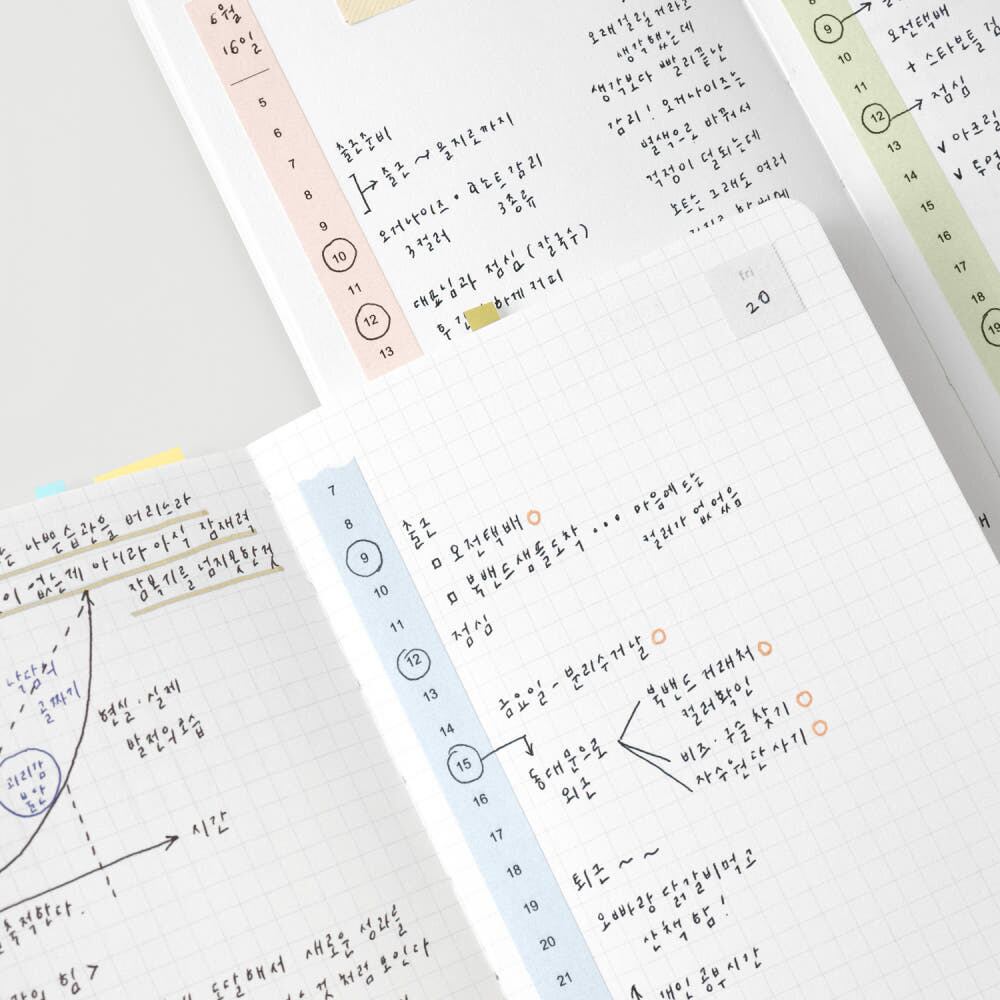 6월
16일
5
6
7
8
9
10
11
12
13
출근준비
출근 ~ 을지로까지
오거나이즈 · a노트 감리
3컬러
3종류
대표님과 점심 (칼국수)
하게 커피
오래 걸릴거라고
생각했는데
생각보다 빨리끝난
감리! 오거나이즈는
별색으로 바꿔서
걱정이 덜되는데
노트는 그래도 여러
9
10
11
12
13
14
15
16
17
18
19
오전택배
+ 스타보틀
점심
v 아크릴
v 투명
fri
20
7
8
9
10
11
12
13
14
15
16
17
18
19
20
21
출근
□ 오전택배
□ 북밴드샘플도착 ... 마음에 드는
컬러가 없었음
점심
금요일 - 분리수거날
동대문으로
외근
북밴드 거래처
컬러확인
비즈 · 구슬 찾기
자수원단 사기
퇴근 ~ ~
오빠랑 닭갈비먹고
산책 함!
개인 공부시간
는 나쁜습관을 버리느라
이 없는게 아니라 아직 잠재력
잠복기를 넘지못한것
낙담의
골짜기
현실 · 실제
발전의모습
괴리감
불안
시간
축적한다.
힘 >
도달해서 새로운 성과를
것 처럼 보인다